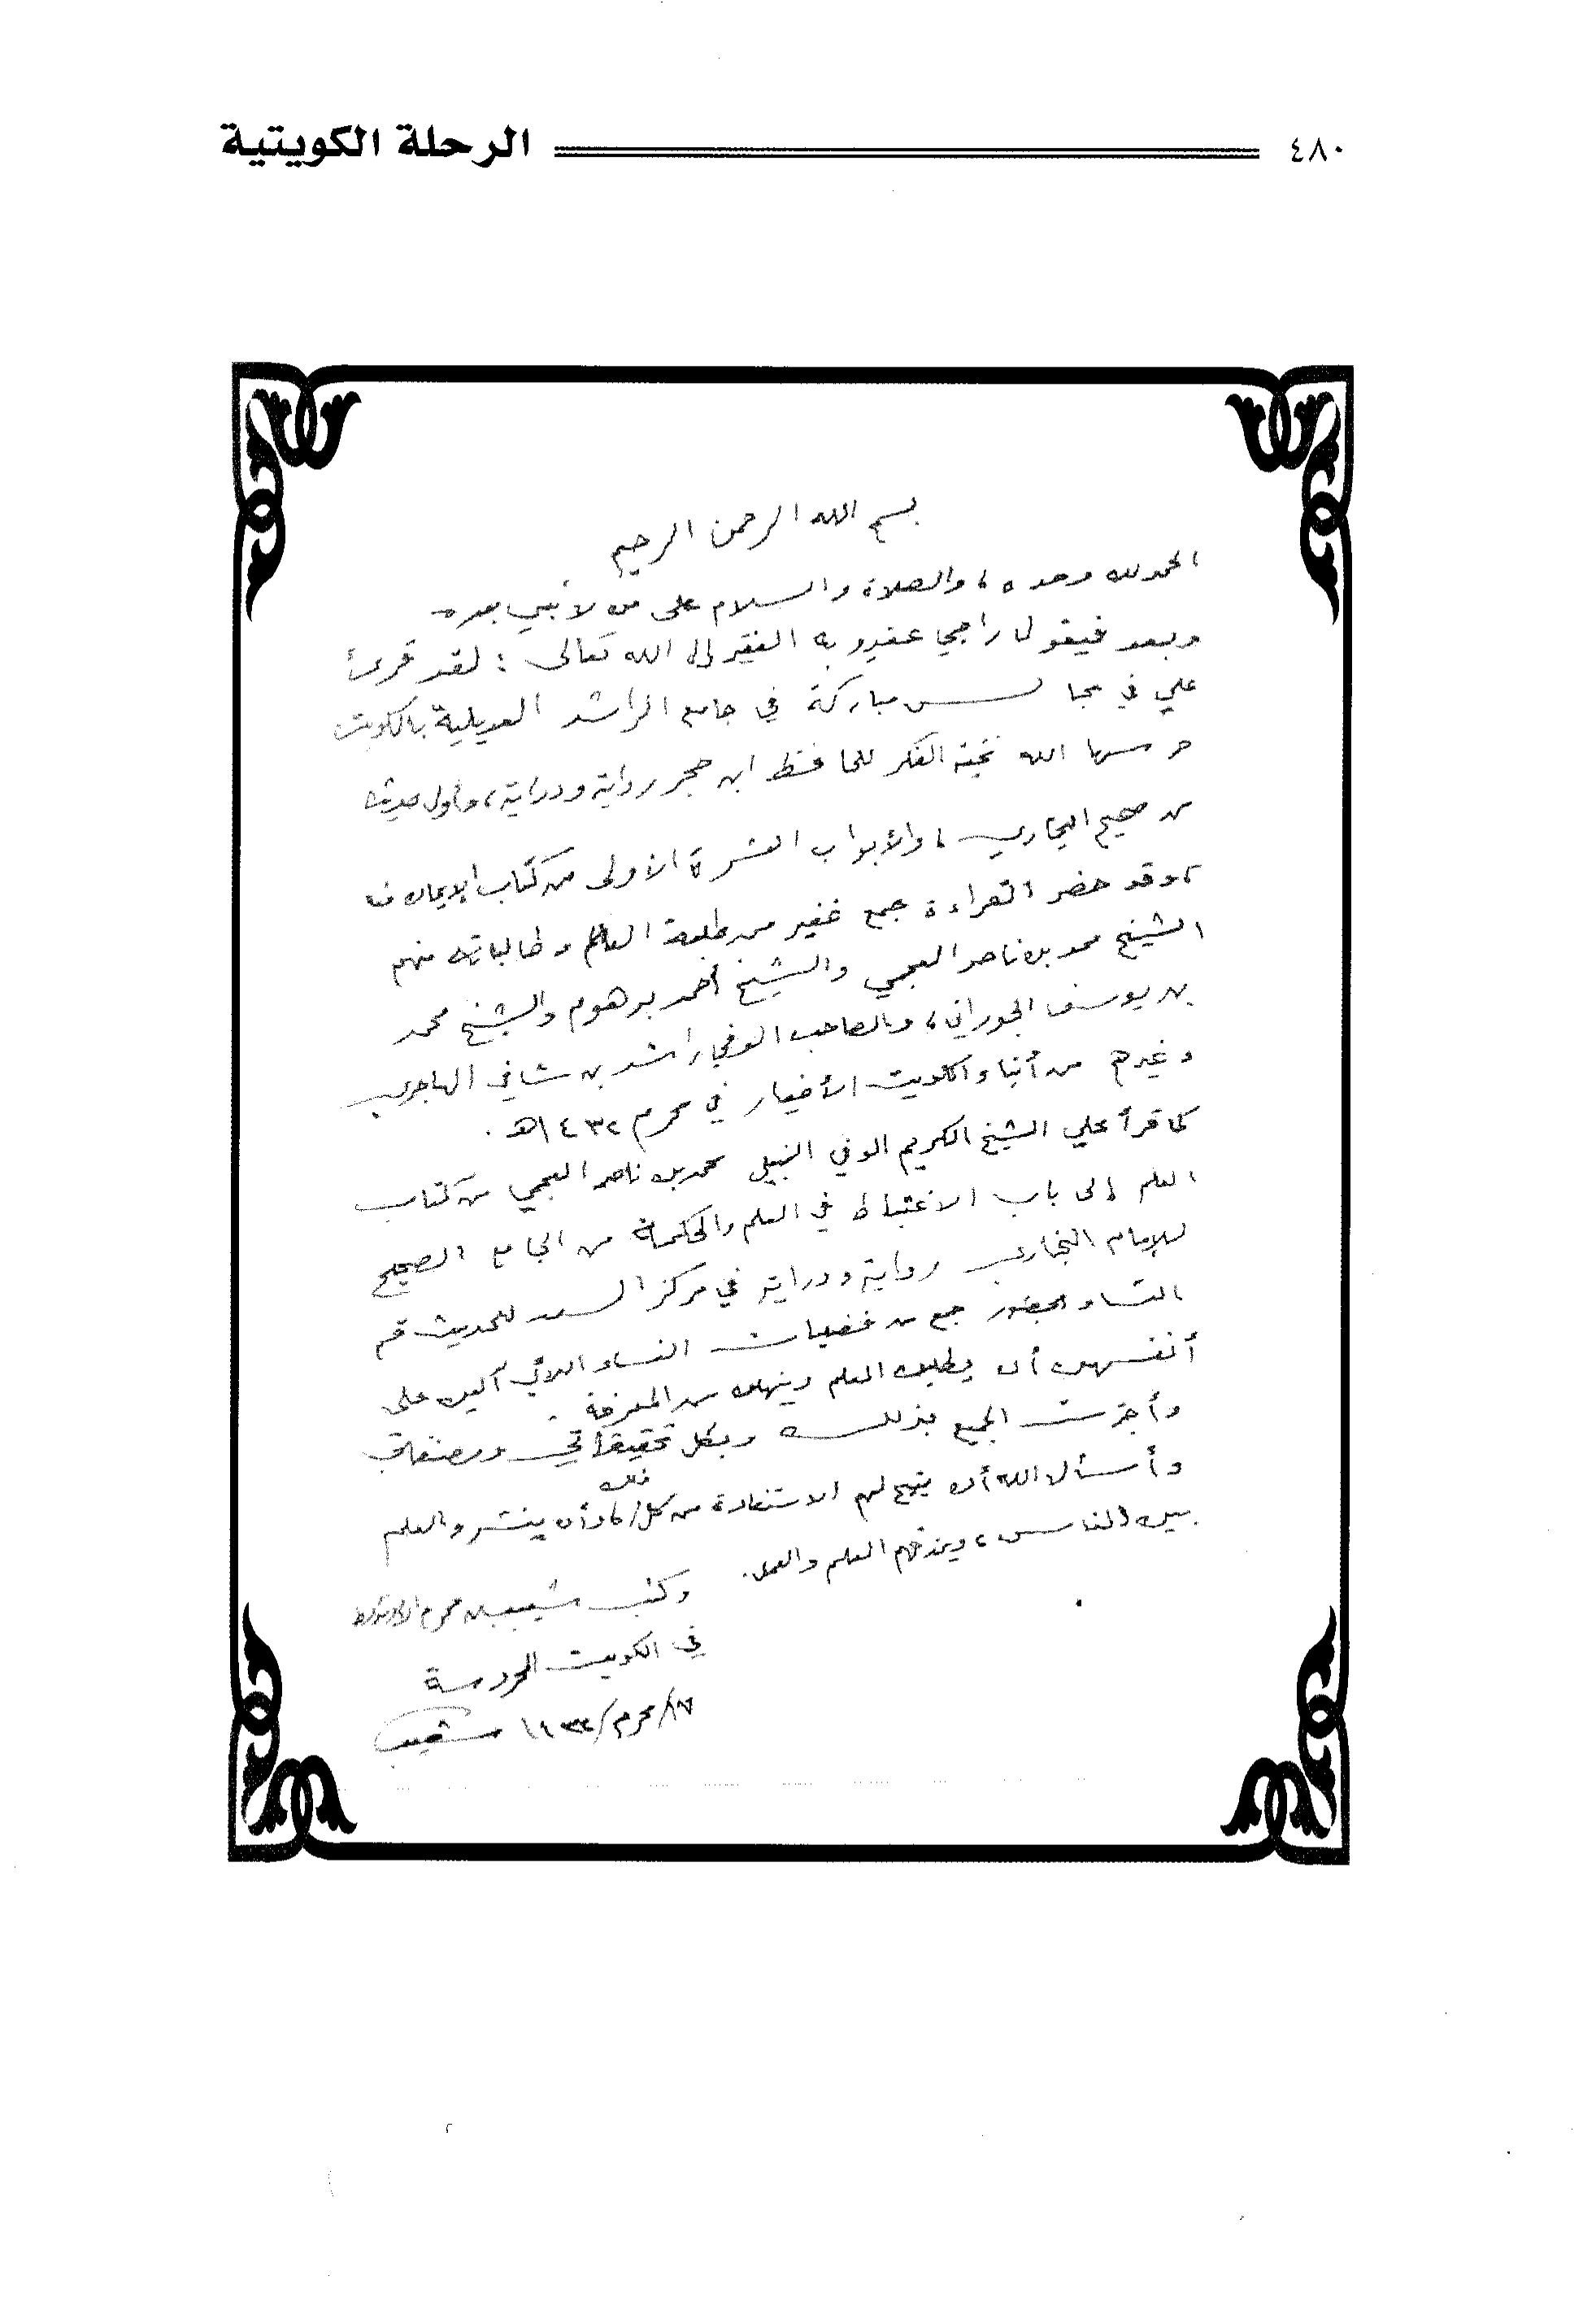 ٤٨٠ الرحلة الكويتية
بسم الله الرحمن الرحيم
الحمد لله وحده، والصلاة والسلام على من لا نبي بعده
وبعد فيقول راجي عفو ربه الفقير إلى الله تعالى : لقد قرئ
علي في مجالس مباركة في جامع الراشد العديلية بالكويت
حرسها الله نخبة الفكر للحافظ ابن حجر رواية ودراية، وأول حديث
من صحيح البخاري، والأبواب العشرة الأولى من كتاب الإيمان منه
، وقد حضر القراءة جمع غفير من طلبة العلم وطالباته منهم
الشيخ محمد بن ناصر العجمي والشيخ أحمد برهوم والشيخ محمد
بن يوسف الجوراني، والصاحب الوفي راشد بن شافي الهاجري
وغيرهم من أبناء الكويت الأخيار في محرم ١٤٣٢هـ .
كما قرأ علي الشيخ الكريم الوفي النبيل محمد بن ناصر العجمي من كتاب
العلم إلى باب الاغتباط في العلم والحكمة من الجامع الصحيح
للإمام البخاري رواية ودراية في مركز السعد للحديث قسم
النساء بحضور جمع من فضليات النساء اللائي آلين على
أنفسهن أن يطلبن العلم وينهلن من المعرفة .
وأجزت الجميع بذلك وبكل تحقيقاتي ومصنفاتي
وأسأل الله أن يتيح لهم الاستفادة من كل ذلك وأن ينشروا العلم
بين الناس، ويرزقهم العلم والعمل .
وكتب شعيب بن محرم الأرنؤوط
في الكويت المحروسة
/محرم/١٤٣٢ شعيب